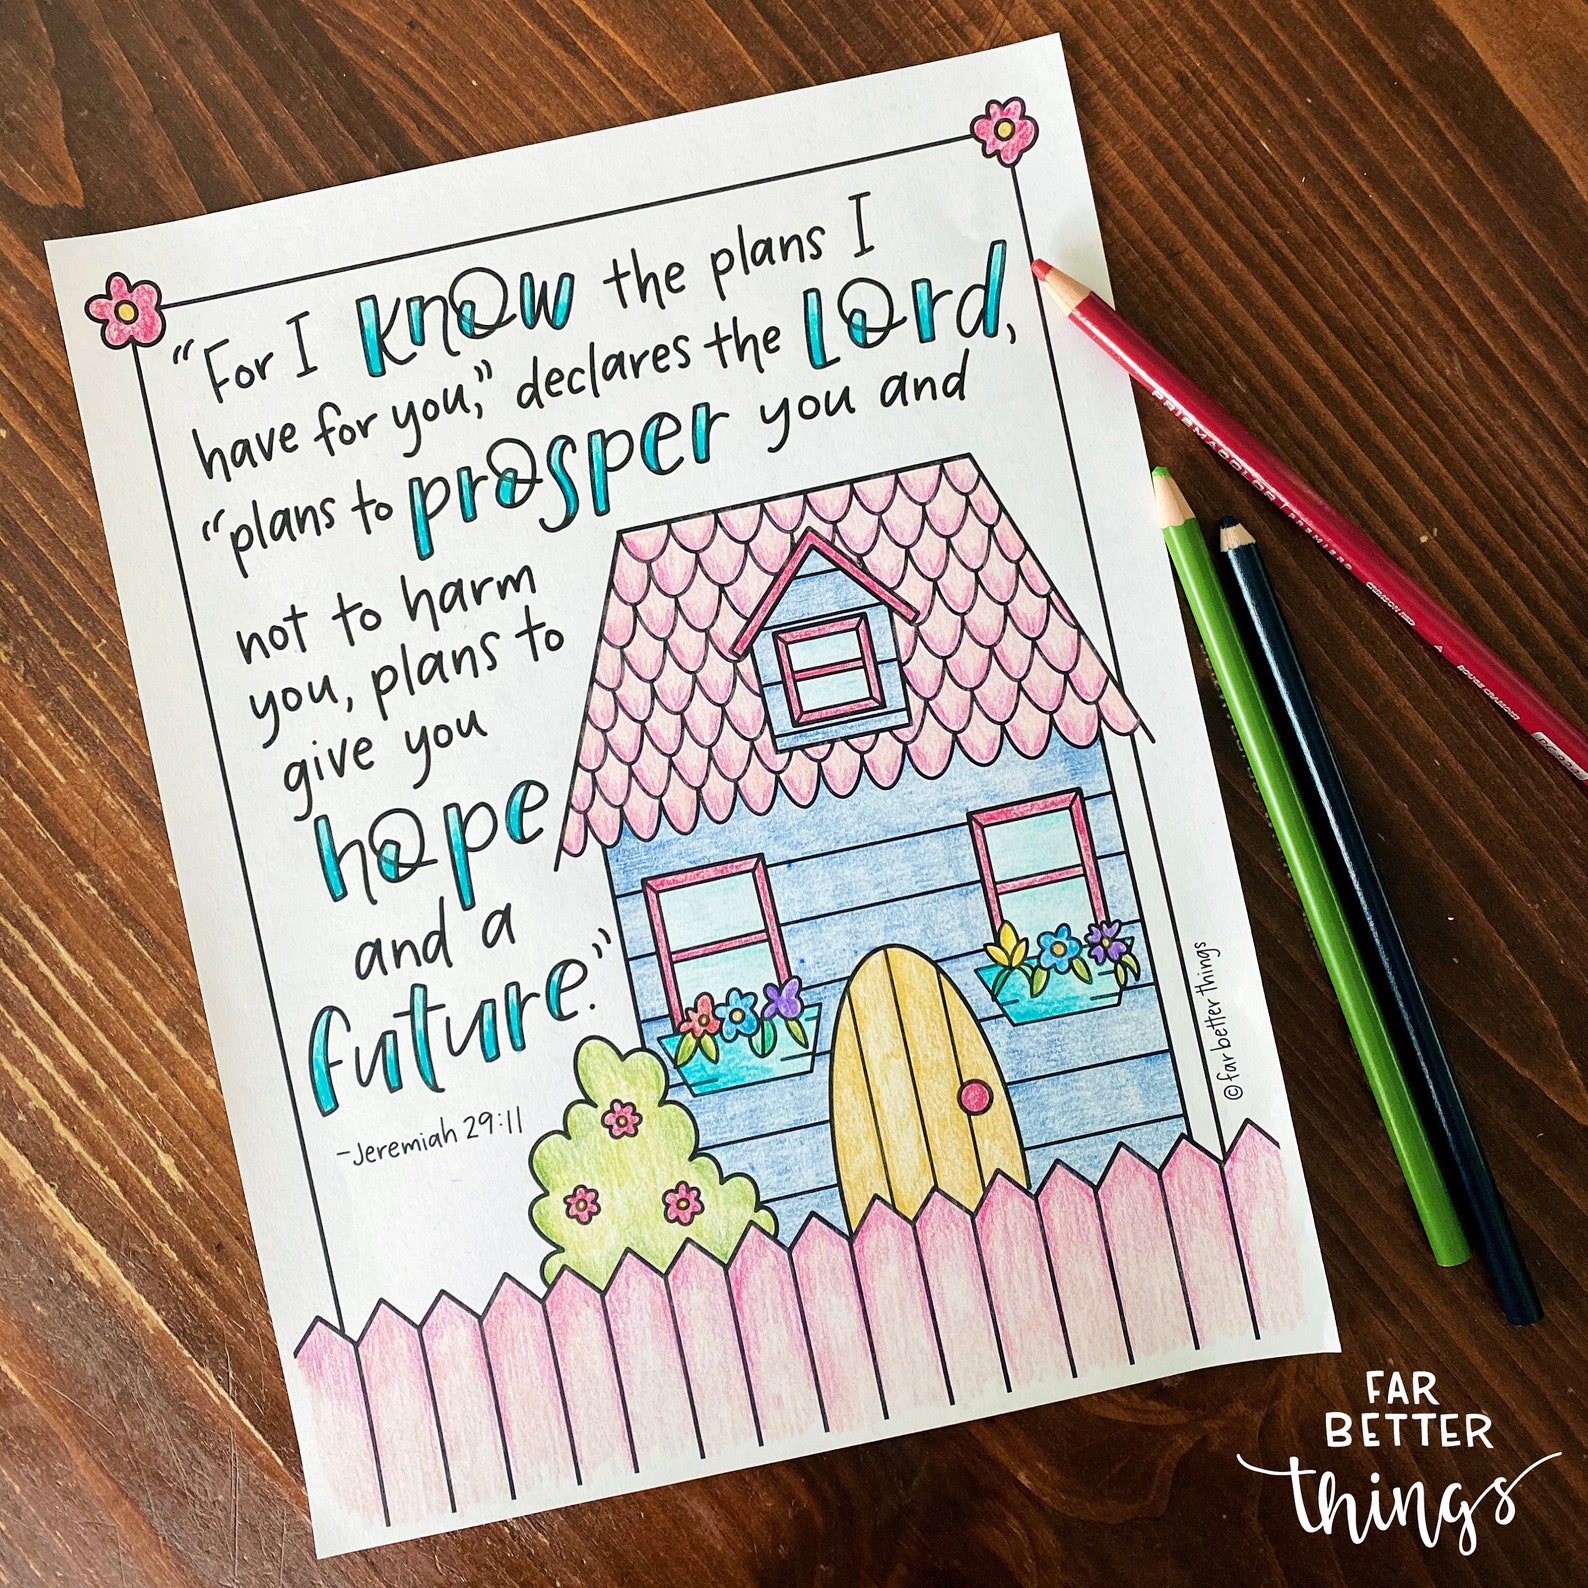 "For I know the plans I
have for you," declares the Lord,
"plans to prosper you and
not to harm
you, plans to
give you
hope
and a
future."
-Jeremiah 29:11
©far better things
PRISMACOLOR PREMIER
FAR
BETTER
things